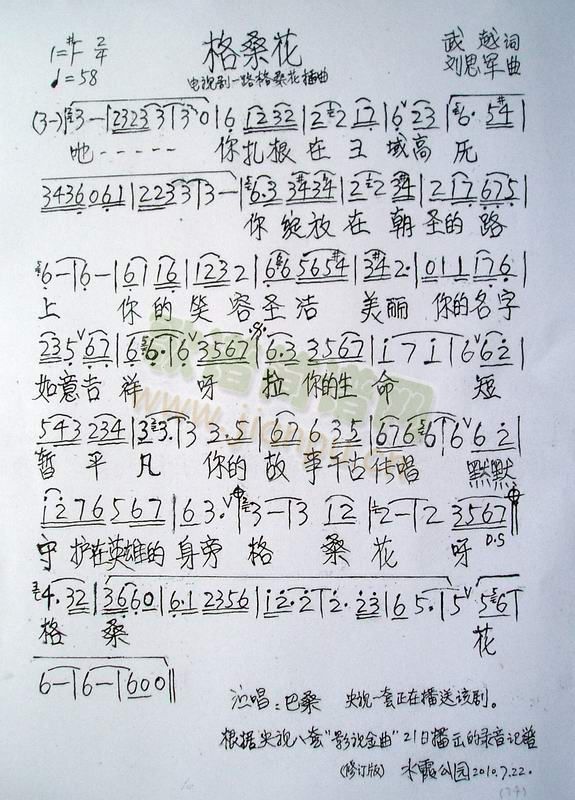 格桑花
1=#F 2/4
♩=58
武越词
刘思军曲
电视剧一路格桑花插曲
(3-)|3-|2323 3|3 0|6 1232|2 2 17|6 23|6· 5#4|
吔----- 你扎根在 域高
3436 061|2233|3-|6·3 3#434|2 2 3#4|2 17 675|
你绽放在朝圣的路
6-|6-|61 16|123 2|66 565#4|3#4 2·|011 176|
上 你的笑容圣洁 美丽 你的名字
235 67|6 6·|6 3567|6·3 3567|i 7 i|6 66 2|
如意吉祥 呀 拉你的生命 短
543 234|3 3·|3 3·2|6 6 35|676 6|6 6 2|
暂平凡 你的故事千古传唱 默默
i276 5667|6 3·|3-|3 12|2-|2 3567|
守护在英雄的身旁 格桑花呀 D.S
4·32|3660|6·1 2356|i2·2|2·23|6 5·|5 56|
格桑 花
6-|6-|600‖
演唱：巴桑 央视一套正在播送该剧。
根据央视八套"影视金曲"21日播出的录音记谱
(修订版) 水霞公园2010.7.22.